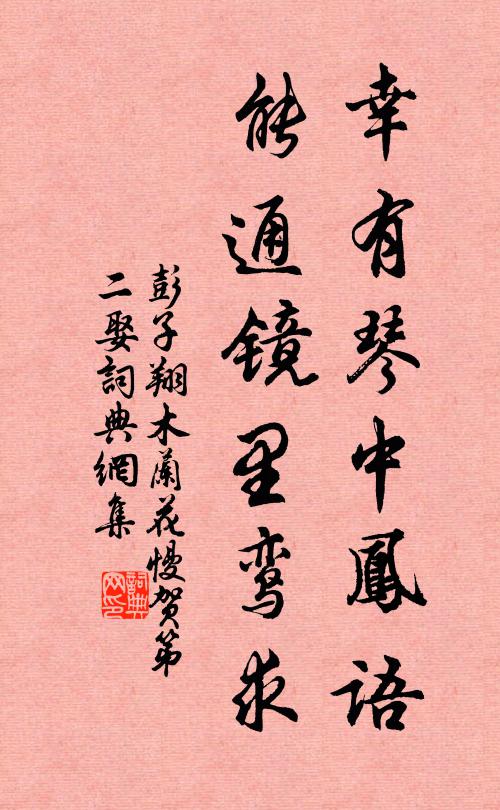 幸有琴中鳳語
能通镜里鸾求
彭子翔木蘭花慢贺第
二娶詞典網集
詞典网印